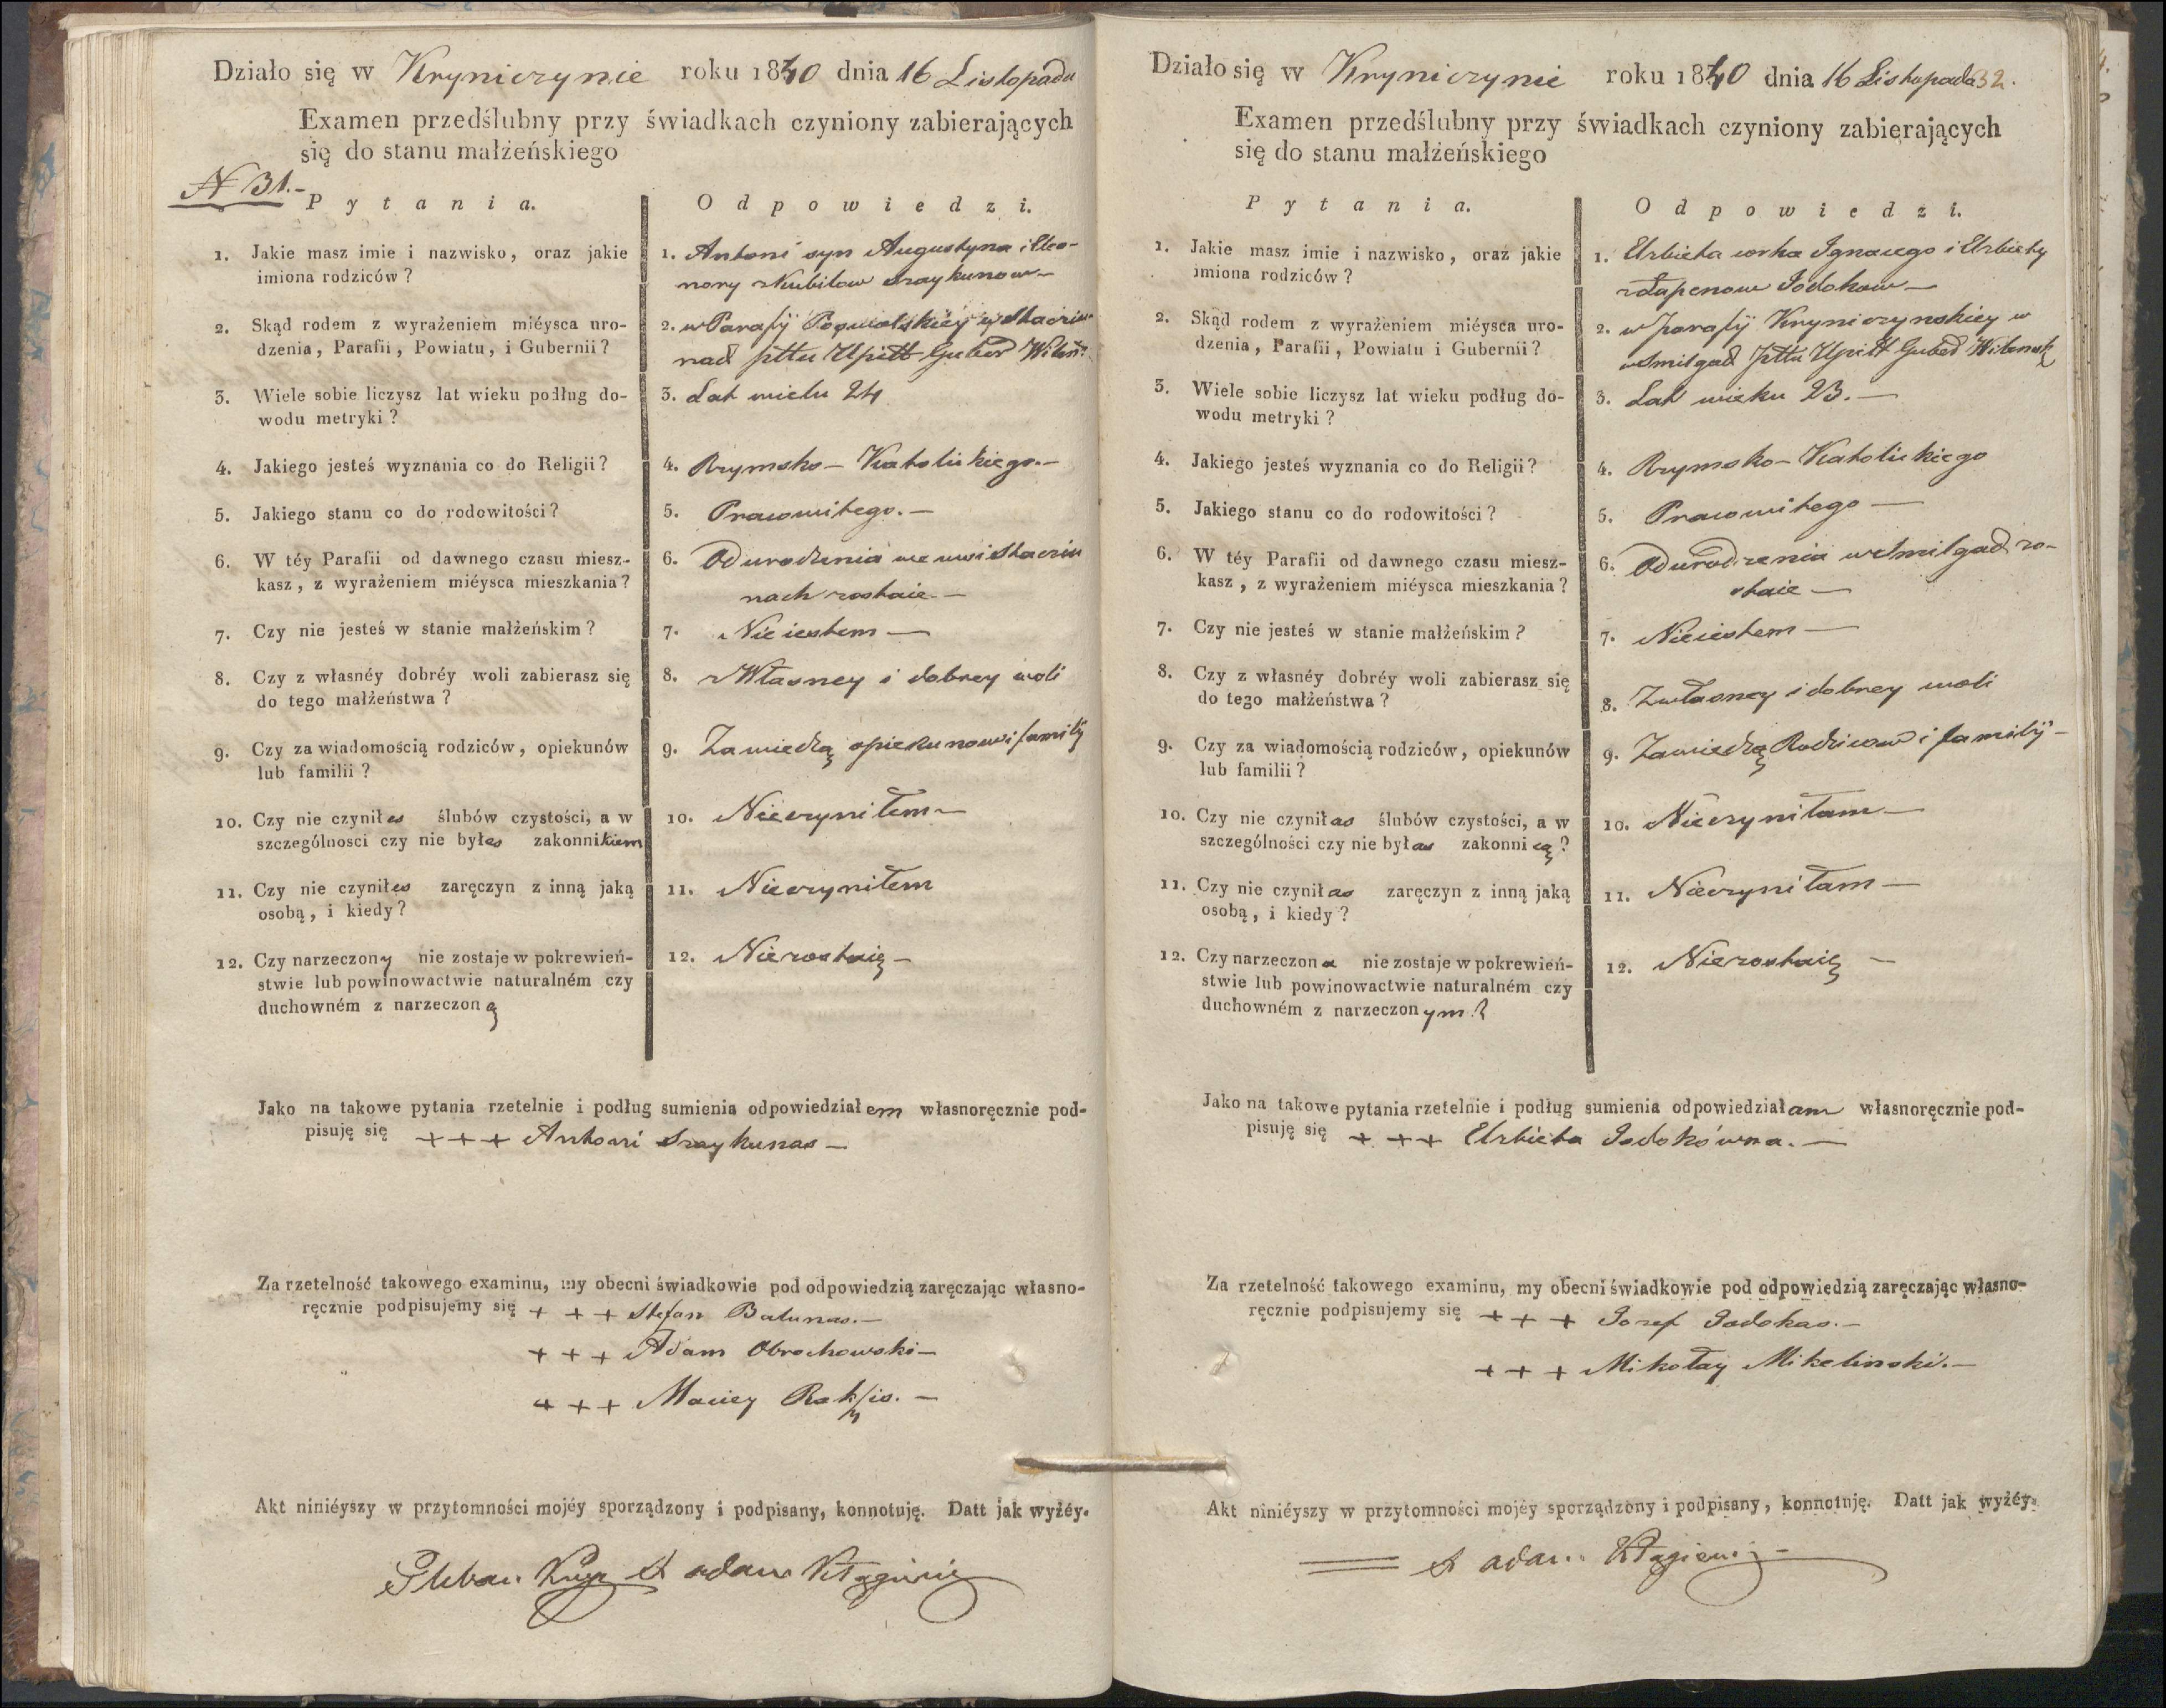 Działo się w Kryniczynie roku 1840 dnia 16 Listopada
Examen przedślubny przy świadkach czyniony zabierających
się do stanu małżeńskiego
N 31.-
Pytania.
Odpowiedzi.
1. Jakie masz imie i nazwisko, oraz jakie
imiona rodziców?
1. Antoni syn Augustyna i Eleo-
nory
2. Skąd rodem z wyrażeniem miéysca uro-
dzenia, Parafii, Powiatu, i Gubernii?
2. w Parafij
nad pttu Upitt Guber Wileń
3. Wiele sobie liczysz lat wieku podług do-
wodu metryki?
3. Lat wieku 24
4. Jakiego jesteś wyznania co do Religii?
4. Rzymsko-Katolickiego.-
5. Jakiego stanu co do rodowitości?
5. Pracowitego.-
6. W téy Parafii od dawnego czasu miesz-
kasz, z wyrażeniem miéysca mieszkania?
6. Od urodzenia we wsi
nach zostaie.-
7. Czy nie jesteś w stanie małżeńskim?
7. Nie iestem-
8. Czy z własnéy dobréy woli zabierasz się
do tego małżeństwa?
8. z Własney i dobrey woli
9. Czy za wiadomością rodziców, opiekunów
lub familii?
9. Za wiedzą opiekunow i familij
10. Czy nie czyniłes ślubów czystości, a w
szczególnosci czy nie byłes zakonnikiem
10. Nieczyniłem-
11. Czy nie czyniłes zaręczyn z inną jaką
osobą, i kiedy?
11. Nieczyniłem
12. Czy narzeczony nie zostaje w pokrewień-
stwie lub powinowactwie naturalném czy
duchowném z narzeczoną
12. Niezostaię-
Jako na takowe pytania rzetelnie i podług sumienia odpowiedziałem własnoręcznie pod-
pisuję się +++ Antoni Szaykunas-
Za rzetelność takowego examinu, my obecni świadkowie pod odpowiedzią zaręczając własno-
ręcznie podpisujemy się +++ Stefan Balunas.-
+++ Adam Obrochowski-
+++ Maciey
Akt niniéyszy w przytomności mojéy sporządzony i podpisany, konnotuję. Datt jak wyżéy.
Pleban X Adam
Działo się w Kryniczynie roku 1840 dnia 16 Listopada 32.
Examen przedślubny przy świadkach czyniony zabierających
się do stanu małżeńskiego
Pytania.
Odpowiedzi.
1. Jakie masz imie i nazwisko, oraz jakie
imiona rodziców?
1. Elzbieta corka Ignacego i Elzbiety
Jodokow-
2. Skąd rodem z wyrażeniem miéysca uro-
dzenia, Parafii, Powiatu i Gubernii?
2. w parafij Kryniczynskiey w
w Smilgad pttu Upitt Guber Wilensk
3. Wiele sobie liczysz lat wieku podług do-
wodu metryki?
3. Lat wieku 23.-
4. Jakiego jesteś wyznania co do Religii?
4. Rzymsko-Katolickiego
5. Jakiego stanu co do rodowitości?
5. Pracowitego-
6. W téy Parafii od dawnego czasu miesz-
kasz, z wyrażeniem miéysca mieszkania?
6. Od urodzenia w Smilgad zo-
staie-
7. Czy nie jesteś w stanie małżeńskim?
7. Nieiestem-
8. Czy z własnéy dobréy woli zabierasz się
do tego małżeństwa?
8. Zwłasney i dobrey woli
9. Czy za wiadomością rodziców, opiekunów
lub familii?
9. Zawiedzą Rodzicow i familij-
10. Czy nie czyniłas ślubów czystości, a w
szczególności czy nie byłas zakonnicą?
10. Nieczyniłam-
11. Czy nie czyniłas zaręczyn z inną jaką
osobą, i kiedy?
11. Nieczyniłam-
12. Czy narzeczona nie zostaje w pokrewień-
stwie lub powinowactwie naturalném czy
duchowném z narzeczonym?
12. Niezostaię-
Jako na takowe pytania rzetelnie i podług sumienia odpowiedziałam własnoręcznie pod-
pisuję się +++ Elzbieta Jodokówna.-
Za rzetelność takowego examinu, my obecni świadkowie pod odpowiedzią zaręczając własno-
ręcznie podpisujemy się +++ Jozef Jodokas.-
+++ Mikołay Mikelinski.-
Akt niniéyszy w przytomności mojéy sporządzony i podpisany, konnotuję. Datt jak wyżéy.
X Adam